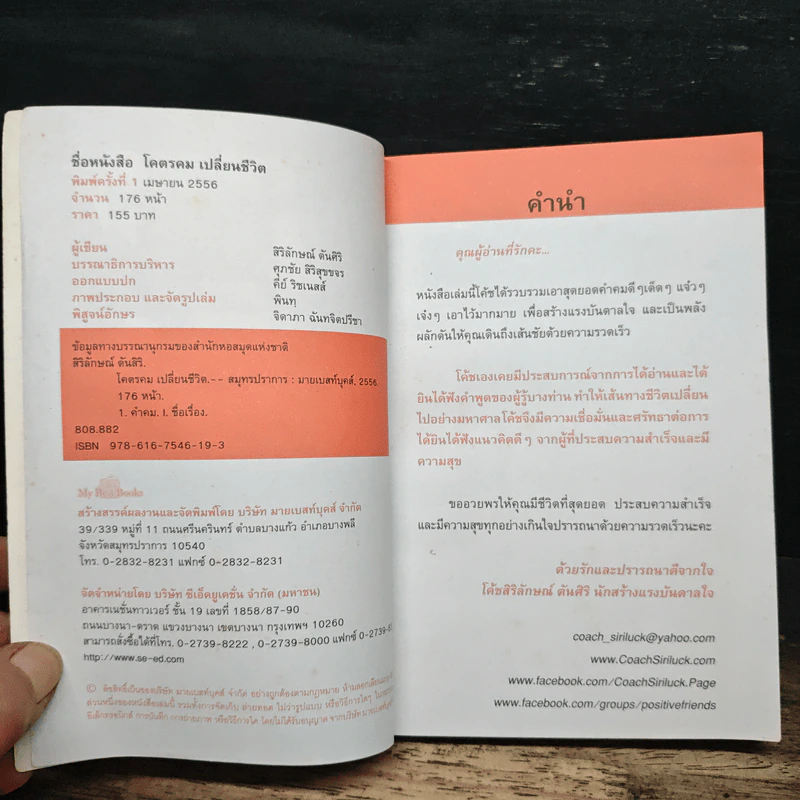 ชื่อหนังสือ โคตรคม เปลี่ยนชีวิต
พิมพ์ครั้งที่ 1 เมษายน 2556
จำนวน 176 หน้า
ราคา 155 บาท
ผู้เขียน สิริลักษณ์ ตันศิริ
บรรณาธิการบริหาร ศุภชัย สิริสุขขจร
ออกแบบปก คีย์ ริชเนสส์
ภาพประกอบ และจัดรูปเล่ม พินทุ
พิสูจน์อักษร จิดาภา ฉันทจิตปรีชา
ข้อมูลทางบรรณานุกรมของสำนักหอสมุดแห่งชาติ
สิริลักษณ์ ตันสิริ.
โคตรคม เปลี่ยนชีวิต.-- สมุทรปราการ : มายเบสท์บุคส์, 2556.
176 หน้า.
1. คำคม. I. ชื่อเรื่อง.
808.882
ISBN 978-616-7546-19-3
My Best Books
สร้างสรรค์ผลงานและจัดพิมพ์โดย บริษัท มายเบสท์บุคส์ จำกัด
39/339 หมู่ที่ 11 ถนนศรีนครินทร์ ตำบลบางแก้ว อำเภอบางพลี
จังหวัดสมุทรปราการ 10540
โทร. 0-2832-8231 แฟกซ์ 0-2832-8231
จัดจำหน่ายโดย บริษัท ซีเอ็ดยูเคชั่น จำกัด (มหาชน)
อาคารเนชั่นทาวเวอร์ ชั้น 19 เลขที่ 1858/87-90
ถนนบางนา-ตราด แขวงบางนา เขตบางนา กรุงเทพฯ 10260
สามารถสั่งซื้อได้ที่โทร. 0-2739-8222 , 0-2739-8000 แฟกซ์ 0-2739-8
http://www.se-ed.com
© ลิขสิทธิ์เป็นของบริษัท มายเบสท์บุคส์ จำกัด อย่างถูกต้องตามกฎหมาย ห้ามลอกเลียน
ส่วนหนึ่งของหนังสือเล่มนี้ รวมทั้งการจัดเก็บ ถ่ายทอด ไม่ว่ารูปแบบ หรือวิธีการใดๆ
อิเล็กทรอนิกส์ การบันทึก การถ่ายภาพ หรือวิธีการใด โดยไม่ได้รับอนุญาต จากบริษัท
คำนำ
คุณผู้อ่านที่รักคะ...
หนังสือเล่มนี้โค้ชได้รวบรวมเอาสุดยอดคำคมดีๆเด็ดๆ แจ๋วๆ
เจ๋งๆ เอาไว้มากมาย เพื่อสร้างแรงบันดาลใจ และเป็นพลัง
ผลักดันให้คุณเดินถึงเส้นชัยด้วยความรวดเร็ว
โค้ชเองเคยมีประสบการณ์จากการได้อ่านและได้
ยินได้ฟังคำพูดของผู้รู้บางท่าน ทำให้เส้นทางชีวิตเปลี่ยน
ไปอย่างมหาศาลโค้ชจึงมีความเชื่อมั่นและศรัทธาต่อการ
ได้ยินได้ฟังแนวคิดดีๆ จากผู้ที่ประสบความสำเร็จและมี
ความสุข
ขออวยพรให้คุณมีชีวิตที่สุดยอด ประสบความสำเร็จ
และมีความสุขทุกอย่างเกินใจปรารถนาด้วยความรวดเร็วนะคะ
ด้วยรักและปรารถนาดีจากใจ
โค้ชสิริลักษณ์ ตันศิริ นักสร้างแรงบันดาลใจ
coach_siriluck@yahoo.com
www.CoachSiriluck.com
www.facebook.com/CoachSiriluck.Page
www.facebook.com/groups/positivefriends